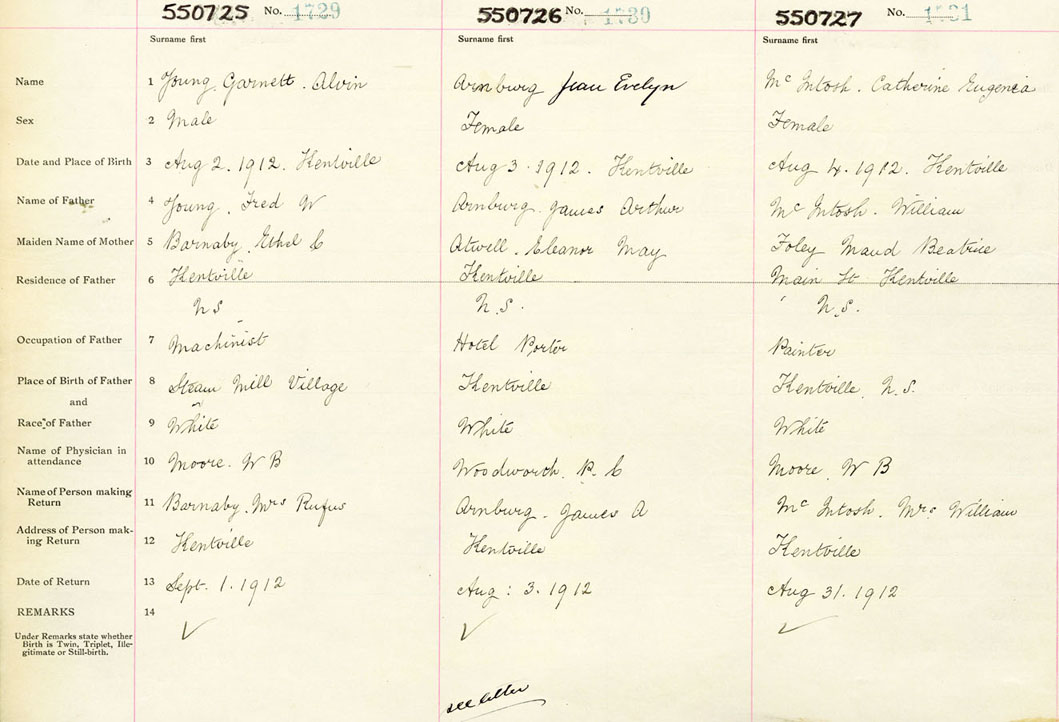 550725 No. 1729 550726 No. 1730 550727 No. 1731
Surname first Surname first Surname first
Name 1 Young Garnett. Alvin Arnburg Jean Evelyn Mc Intosh. Catherine Eugenia
Sex 2 Male Female Female
Date and Place of Birth 3 Aug 2. 1912. Kentville Aug 3. 1912. Kentville Aug 4. 1912. Kentville
Name of Father 4 Young. Fred W Arnburg. James Arthur Mc Intosh. William
Maiden Name of Mother 5 Barnaby. Ethel C Atwell. Eleanor May Foley Maud Beatrice
Residence of Father 6 Kentville Kentville Main St Kentville
N S N. S. N. S.
Occupation of Father 7 Machinist Hotel Porter Painter
Place of Birth of Father 8 Steam Mill Village Kentville Kentville. N. S.
and
Race of Father 9 White White White
Name of Physician in
attendance 10 Moore. W B Woodworth. P. C Moore. W B
Name of Person making
Return 11 Barnaby. Mrs Rufus Arnburg. James A Mc Intosh. Mrs William
Address of Person mak-
ing Return 12 Kentville Kentville Kentville
Date of Return 13 Sept. 1. 1912 Aug: 3. 1912 Aug 31. 1912
REMARKS 14
Under Remarks state whether
Birth is Twin, Triplet, Ille-
gitimate or Still-birth.
see letter